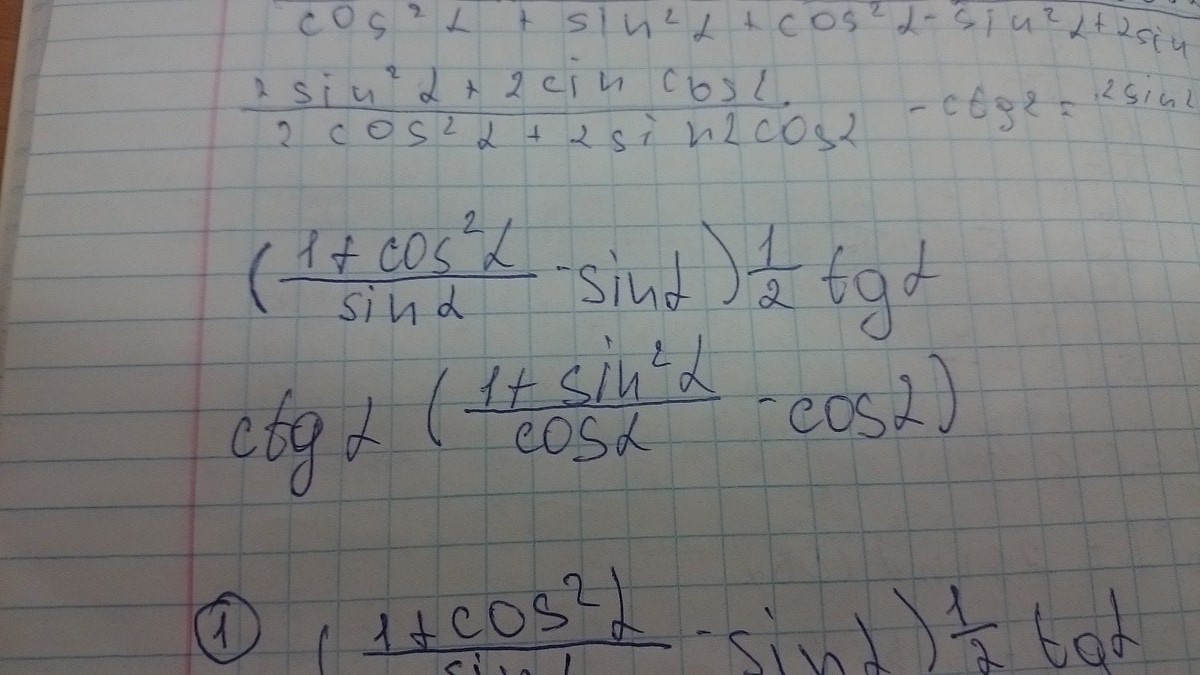 cos² α + sin² α + cos² α - sin² α + 2 sin
2 sin² α + 2 cin cos α
2 cos² α + 2 sin α cos α
- ctg α = 2 sin²
(1 + cos² α / sin α - sin α) 1/2 tg α
ctg α (1 + sin² α / cos α - cos α)
① (1 + cos² α / sin α - sin α) 1/2 tg α